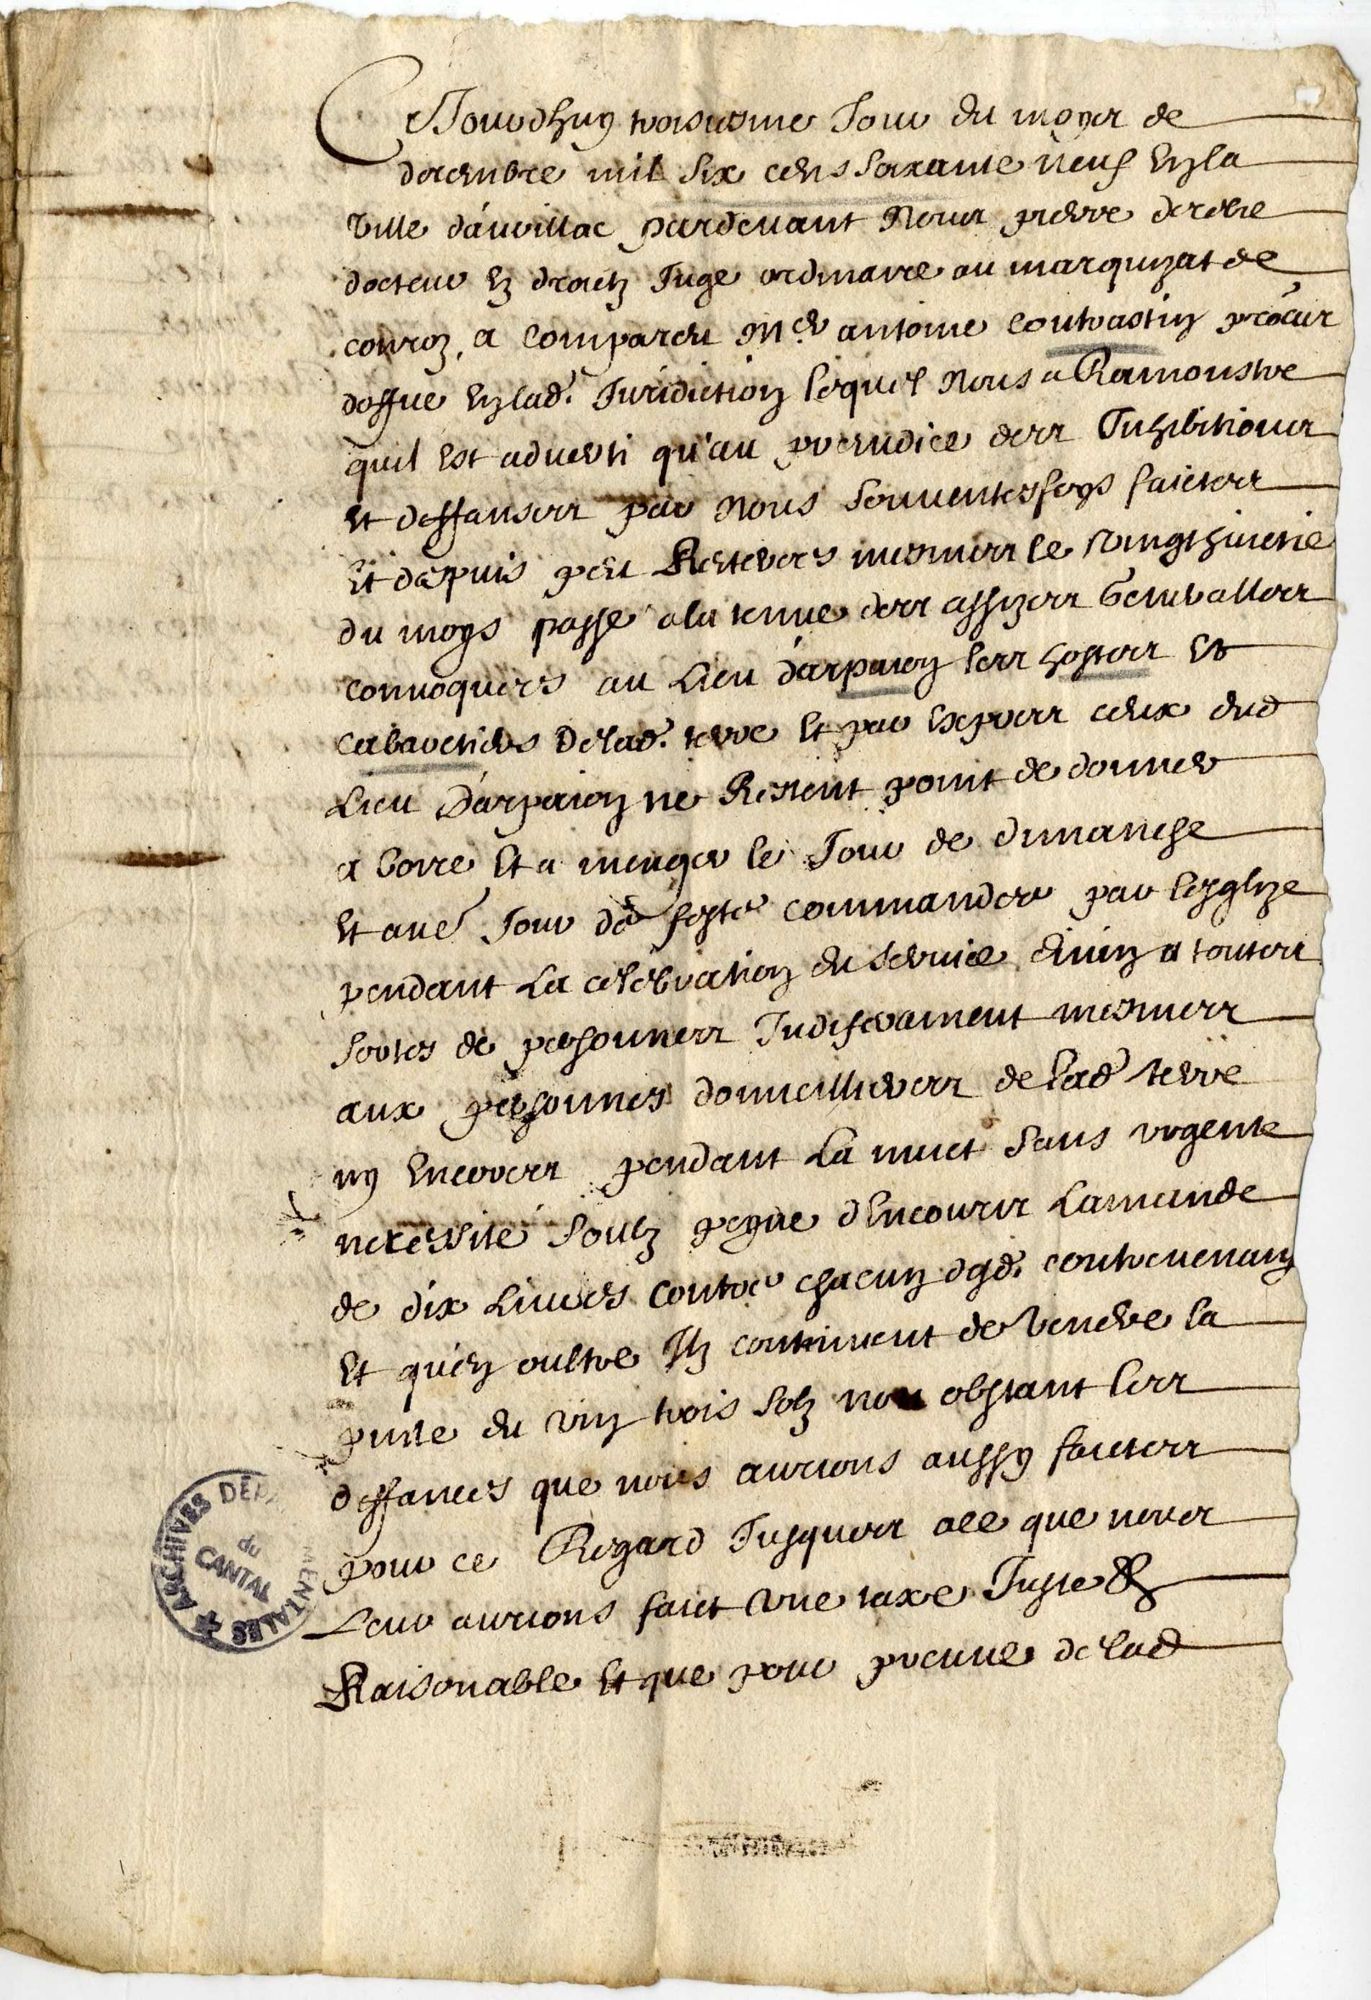 Ce Jourdhuy troisiesme Jour du moys de
decembre mil six cens soixante neuf En la
ville daurillac pardevant Nous pierre
docteur En droictz Juge ordinaire au marquizat de
conros, a comparu Me antoine contrastin procur
doffice En lad. Juridiction lequel Nous a Ramonstre
quil Est adverti qu'au preiudice des Inhibitions
Et deffanses par Nous souventesfoys faictes
Et depuis peu Reiterees mesmes le vingthuictie
du moys passe a la tenue des assizes Generalles
convoquees au Lieu d'arpaion les hostes Et
cabaretiers de lad. terre Et par Expres ceux dud
Lieu D'arpaion ne Restent point de donner
a boire Et a menger le Jour de dimanche
Et au Jour de feste commandee par lesglize
pendant La celebration du service divin a toutes
sortes de personnes Indiferament mesmes
aux personnes domeilliees de lad terre
ny Encores pendant La nuict sans urgente
necessité soubz peyne d'Encourir Lamande
de dix Livres contre chacun dsd. contrevenans
Et qu'en oultre Ilz continuent de vendre la
pinte du vin trois solz non obstant les
deffances que nous aurions aussy faictes
pour ce Regard Jusques a ce que nous
Leur aurions faict une taxe Juste &
Raisonable Et que pour preuve de lad
ARCHIVES DÉPARTEMENTALES
du
CANTAL